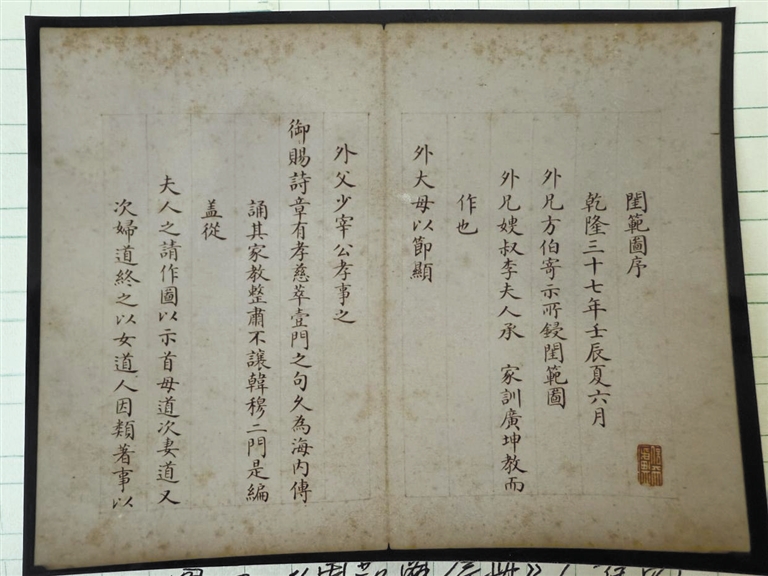 閨範圖序
乾隆三十七年壬辰夏六月
外兄方伯寄示所鋟閨範圖
外兄嫂叔李夫人承 家訓廣坤教而
作也
外大母以節顯
外父少宰公孝事之
御賜詩章有孝慈萃壹門之句久為海內傳
誦其家教整肅不讓韓穆二門是編
盖從
夫人之請作圖以示首母道次妻道又
次婦道終之以女道人因類著事以